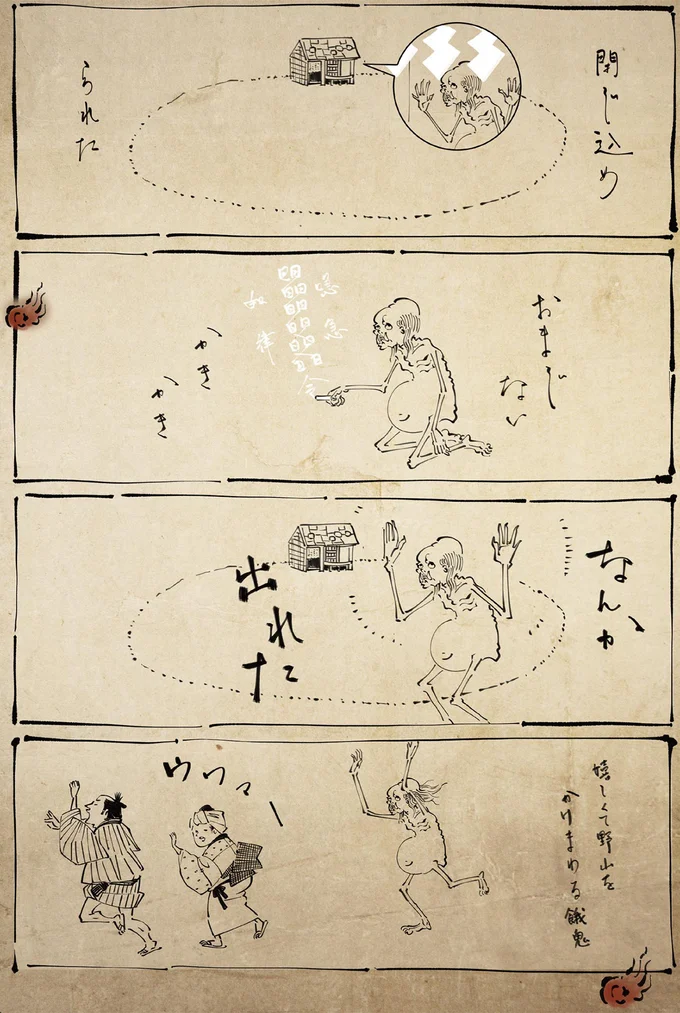 閉じ込め
られた
おまじ
ない
喼急
如律
令
かき
かき
なんか
出れた
嬉しくて野山を
かけまわる餓鬼